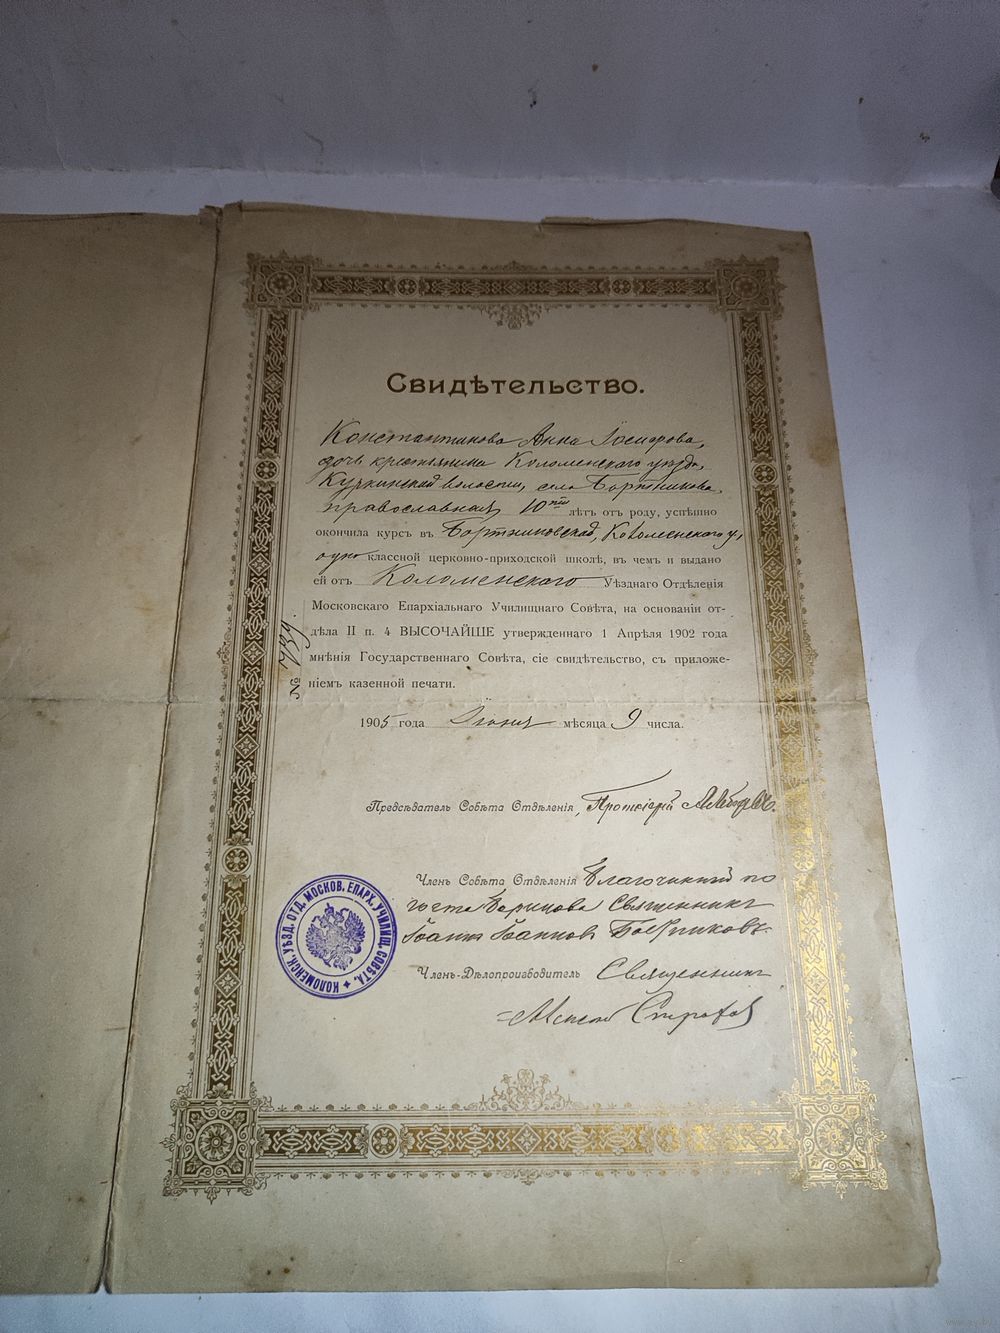 Свидѣтельство.
Константинова Анна
дочь крестьянина Коломенскаго уѣзда,
волости, села Бортникова,
православная, 10ти лѣтъ отъ роду, успѣшно
окончила курсъ въ Бортниковской, Коломенскаго у,
одноклассной церковно-приходской школѣ, въ чемъ и выдано
ей отъ Коломенскаго Уѣзднаго Отдѣленія
Московскаго Епархіальнаго Училищнаго Совѣта, на основаніи от-
дѣла II п. 4 ВЫСОЧАЙШЕ утвержденнаго 1 Апрѣля 1902 года
мнѣнія Государственнаго Совѣта, сіе свидѣтельство, съ приложе-
ніемъ казенной печати.
№ 739.
1905 года Іюня мѣсяца 9 числа.
Предсѣдатель Совѣта Отдѣленія, Протоіерей
Членъ Совѣта Отдѣленія Благочинный по
госта Священникъ
Іоаннъ Іоанновъ
Членъ-Дѣлопроизводитель Священникъ
Страховъ
КОЛОМЕНСК. УѢЗД. ОТД. МОСКОВ. ЕПАРХ. УЧИЛИЩ. СОВѢТА.